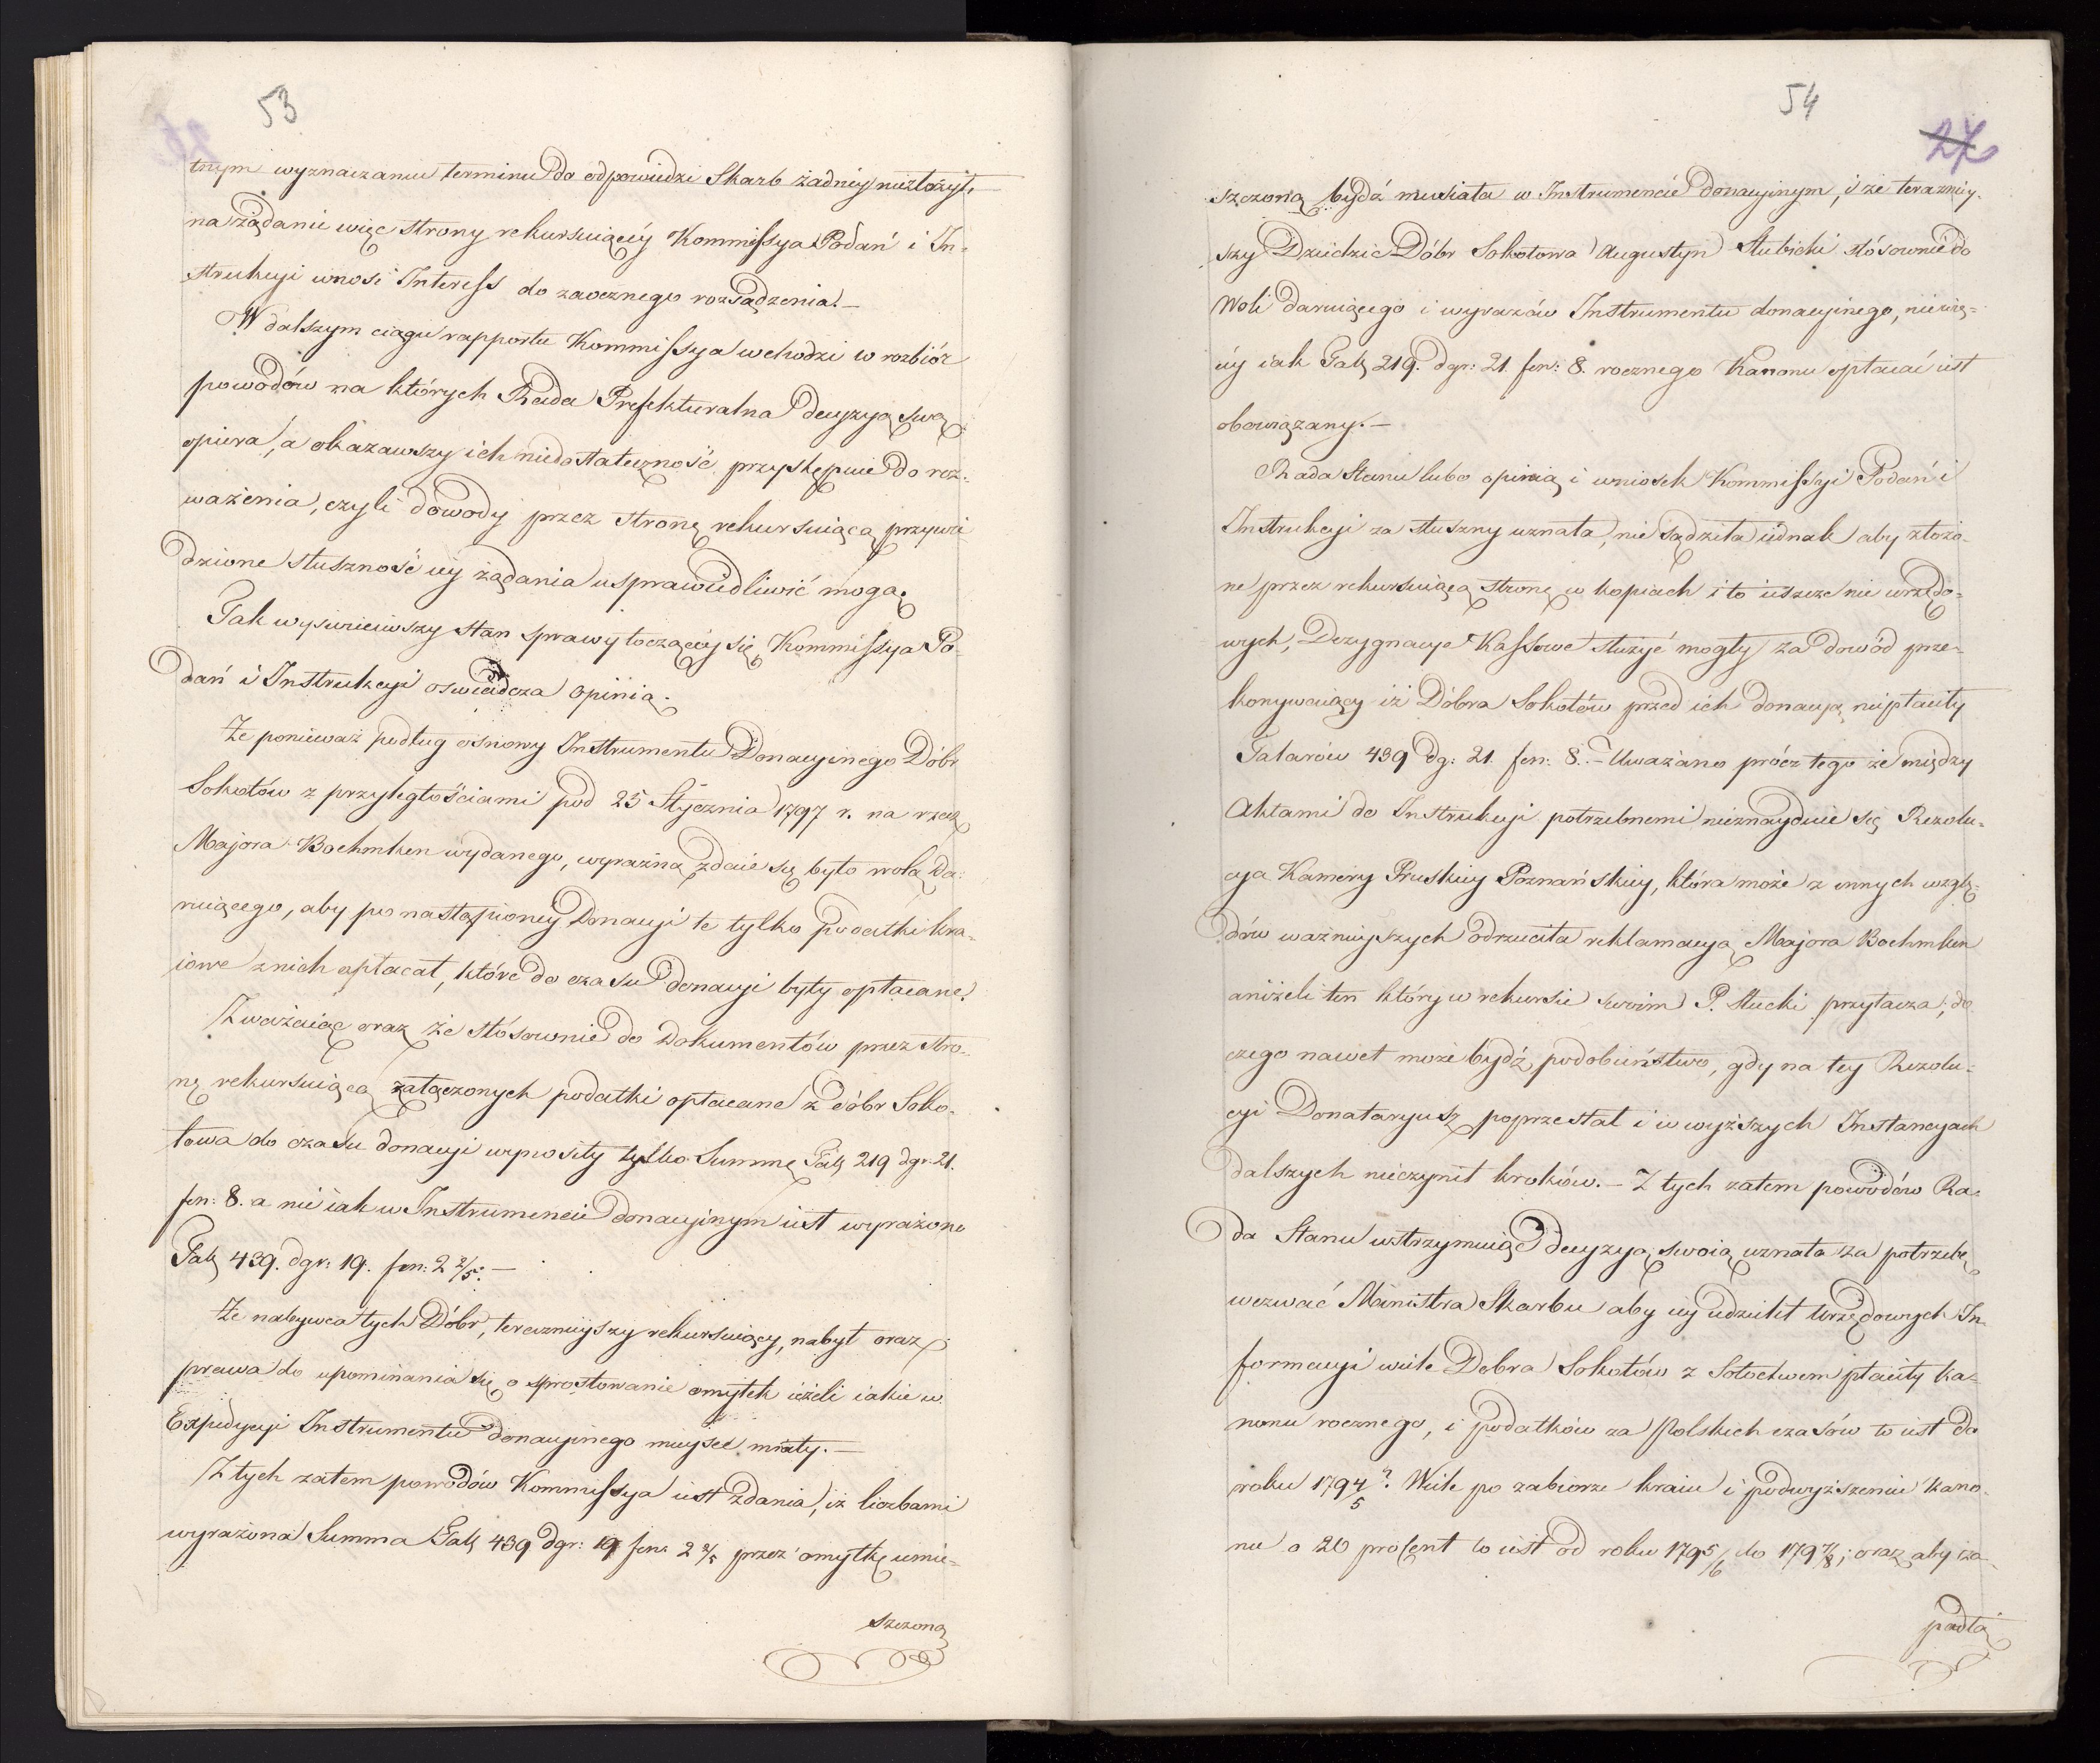 53
tnym wyznaczaniu terminu do odpowiedzi Skarb żadney niezłożył,
na żądanie więc strony rekursuiącey Kommissya Podań i In-
strukcyi wnosi Interess do zaocznego rozsądzenia. —
W dalszym ciągu rapportu Kommissya wchodzi w rozbiór
powodów na których Rada Prefekturalna decyzyą swą
opiera, a okazawszy ich niedostateczność przystępuie do roz-
ważenia, czyli dowody przez stronę rekursuiącą przywie
dzione słuszność iey żądania usprawiedliwić mogą.
Tak wyświeciwszy stan sprawy toczącey się, Kommissya Po-
dań i Instrukcyi oświadcza opinią.
Że ponieważ podług osnowy Instrumentu Donacyinego Dóbr
Sokołów z przyległościami pod 25 Stycznia 1797 r. na rzecz
Majora Boehmken wydanego, wyraźną zdaie się było wolą da-
ruiącego, aby po nastąpioney Donacyi te tylko podatki kra-
iowe z nich opłacał, które do czasu donacyi były opłacane.
Zważaiąc oraz że stósownie do Dokumentów przez stro-
nę rekursuiącą załączonych podatki opłacane z dóbr Soko-
łowa do czasu donacyi wynosiły tylko Summę Talg 219 dgr. 21.
fen: 8. a nie iak w Instrumencie donacyinym iest wyrażono
Talg 439. dgr: 19. fen: 2 2/5. —
Że nabywca tych Dóbr, teraznieyszy rekursuiący, nabył oraz
prawa do upominania się o sprostowanie omyłek ieżeli iakie w
Expedycyi Instrumentu donacyinego mieysce miały. —
Z tych zatem powodów Kommissya iest zdania, iż liczbami
wyrażona Summa Talg 439 dgr: 19 fen: 2 2/5 przez omyłkę umie-
szczoną
54
27
szczoną bydź musiała w Instrumencie donacyinym, i że teraźniey-
szy Dziedzic Dóbr Sokołowa Augustyn Słubicki stósownie do
Woli daruiącego i wyrazów Instrumentu donacyinego, nie wię-
cy iak Talg 219. dgr: 21. fen: 8. rocznego Kanonu opłacać iest
obowiązany. —
Rada Stanu lubo opinią i wniosek Kommissyi Podań i
Instrukcyi za słuszny uznała, nie sądziła iednak aby złożo-
ne przez rekursuiącą stronę w kopiach i to ieszcze nie urzędo-
wych, Dezygnacye Kassowe służyć mogły za dowód prze-
konywaiący iż Dóbra Sokołów przed ich donacyą, niepłaciły
Talarów 439 dg: 21. fen: 8. — Uważano prócz tego że między
Aktami do Instrukcyi potrzebnemi nieznayduie się Rezolu-
cya Kamery Pruskiey Poznańskiey, która może z innych wzglę-
dów ważnieyszych odrzuciła reklamacyą Majora Boehmken
aniżeli ten który w rekursie swoim P. Słucki przytacza; do
czego nawet może bydź podobieństwo, gdy na tey Rezolu-
cyi Donataryusz poprzestał i w wyższych Instancyach
dalszych nieczynił kroków. — Z tych zatem powodów Ra-
da Stanu wstrzymuiąc decyzyą swoią uznała za potrzebę
wezwać Ministra Skarbu aby iey udzielił Urzędowych In-
formacyi wiele Dobra Sokołów z Sołectwem płaciły Ka-
nonu rocznego, i podatków za Polskich czasów to iest do
roku 1794/5? Wiele po zabiorze kraiu i podwyższeniu Kano-
nu o 20 procent to iest od roku 1795/6 do 1797/8; oraz aby za-
padłą